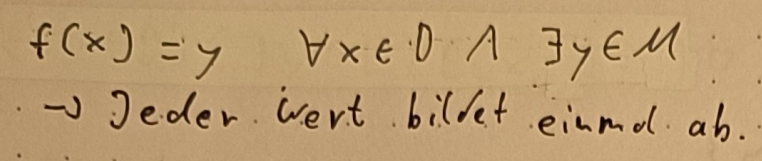 f(x) = y ∀x ∈ D ∧ ∃y ∈ M
→ Jeder Wert bildet einmal ab.